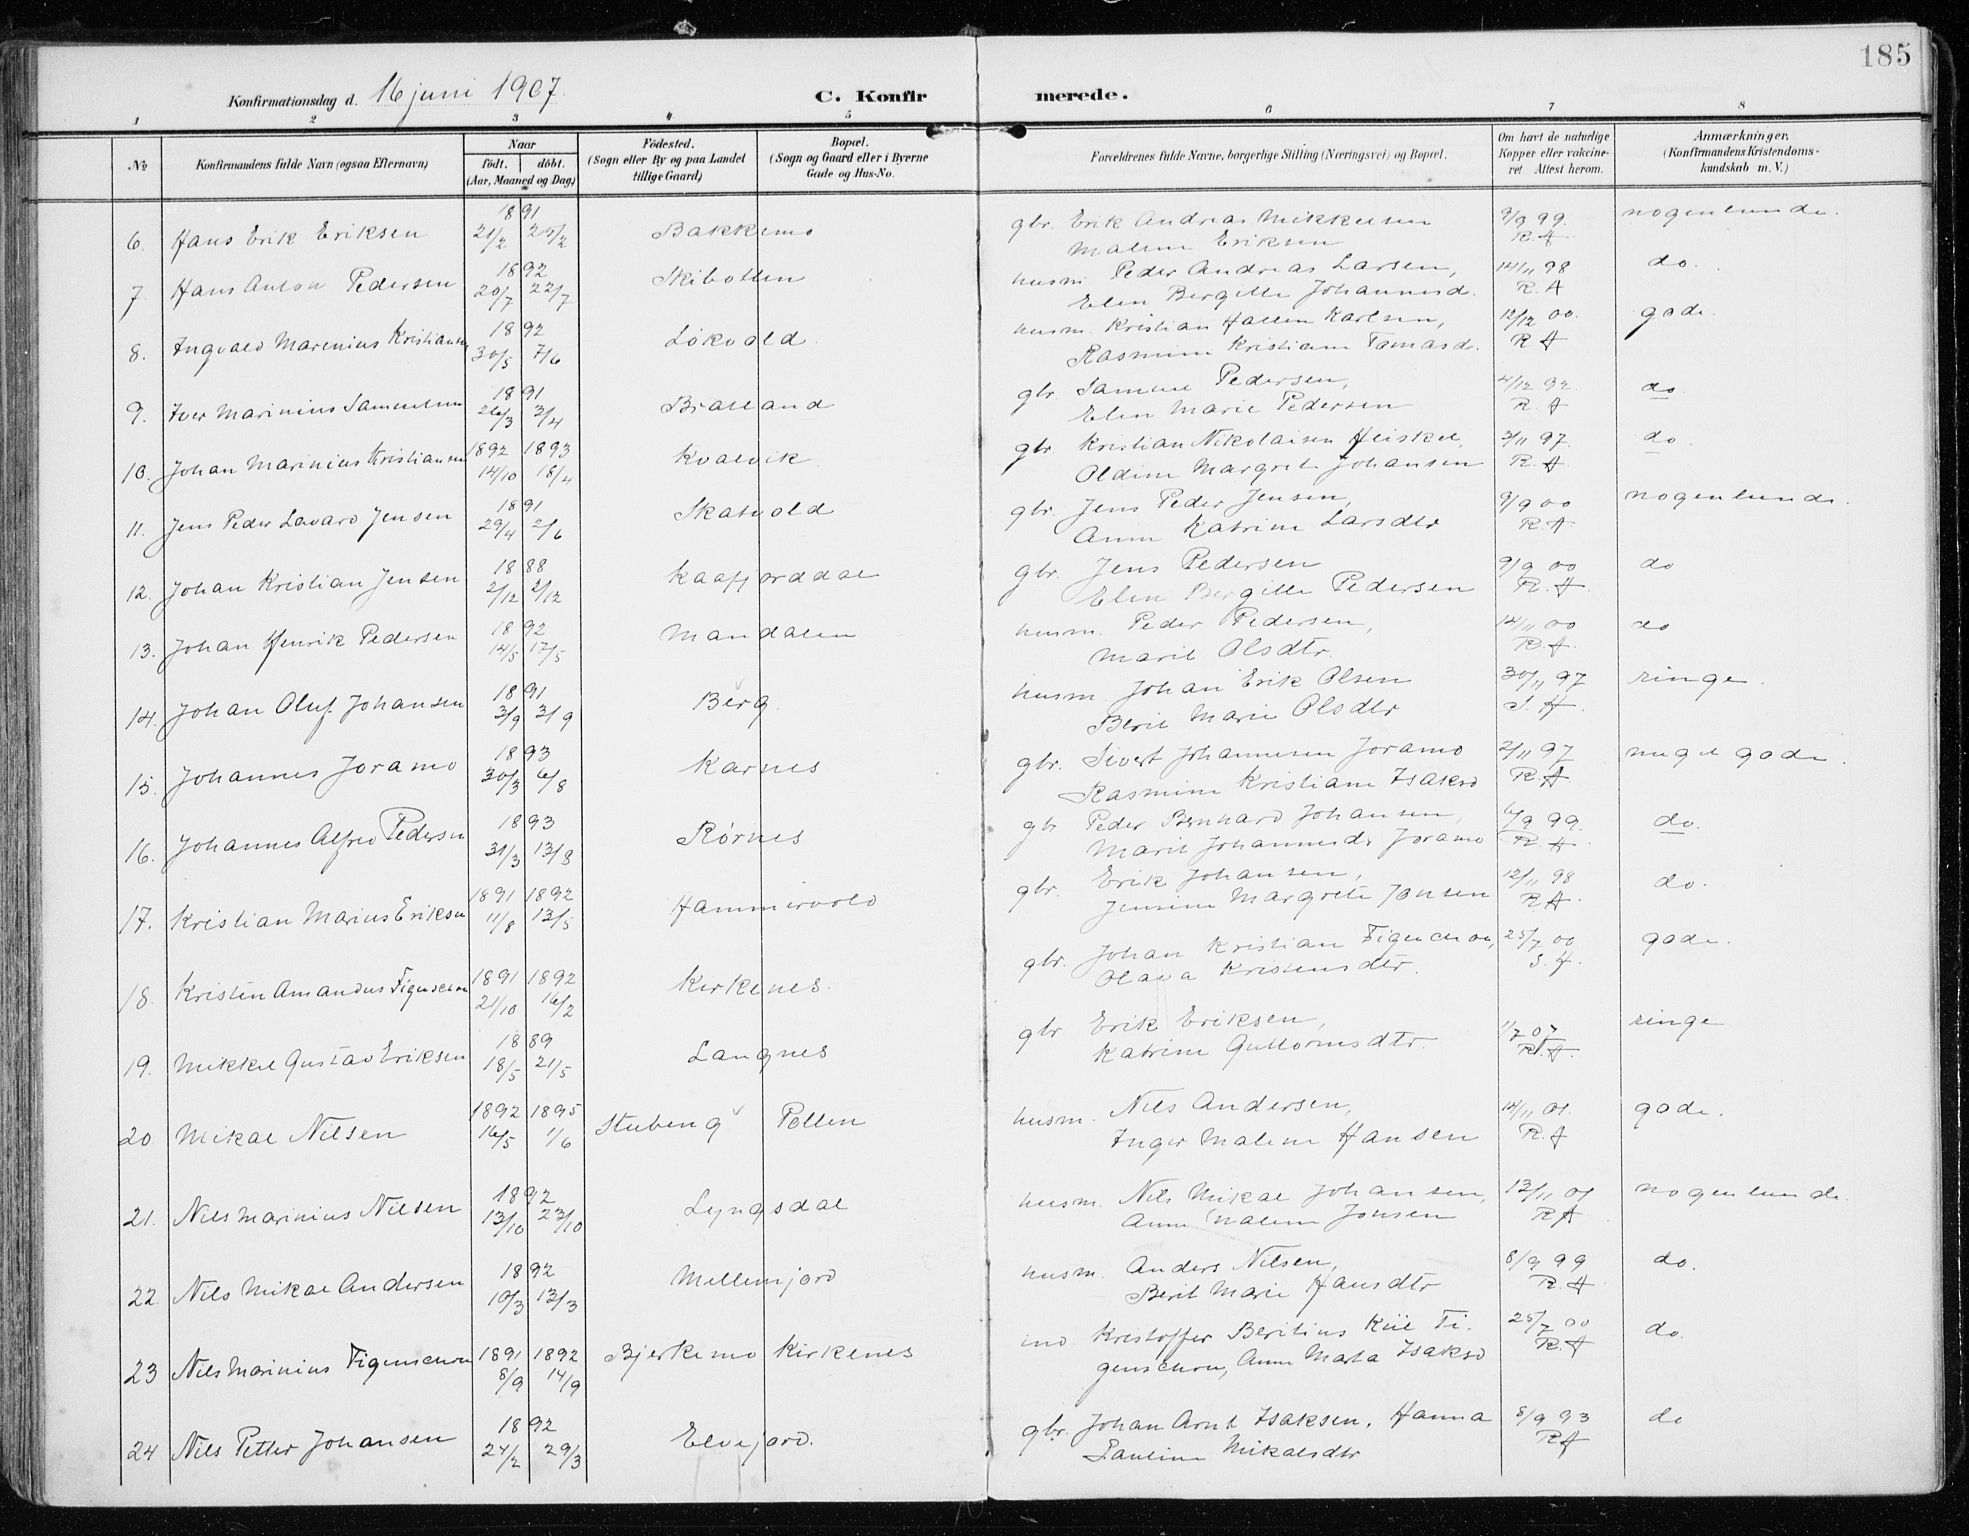 185
Konfirmationsdag d. 16 juni 1907.
C. Konfirmerede.
1 2 3 4 5 6 7 8
No.
Konfirmandens fulde Navn (ogsaa Efternavn)
Naar
födt. döbt.
(Aar, Maaned og Dag)
Födested.
(Sogn eller By og paa Landet
tillige Gaard)
Bopæl.
(Sogn og Gaard eller i Byerne
Gade og Hus-No.
Forældrenes fulde Navne, borgerlige Stilling (Næringsvei) og Bopæl.
Om havt de naturlige
Kopper eller vakcine-
ret. Attest herom.
Anmærkninger.
(Konfirmandens Kristendoms-
kundskab m. V.)
6. Hans Erik Eriksen 1891 21/2 25/2 Bakkemo gbr. Erik Andreas Mikkelsen 9/9 99. nogenlunde.
Malene Eriksen R. A
7 Hans Anton Pedersen 1892 20/7 22/7 Skibotten husm. Peder Andreas Larsen, 14/11 98 do.
Elen Bergitte Johannesd. R. A
8. Ingvald Marenius Kristiansen 1892 30/5 7/6 Lökvold husm. Kristian Hallen Karlsen, 12/12 00. gode.
Rasmine Kristiane Tomasd. R A
9. Iver Marinius Samuelsen 1891 26/3 3/4 Braseland gbr. Samuel Pedersen, 4/12 92. do
Elen Marie Pedersen R. A
10. Johan Marinius Kristiansen 1892 1893 14/10 18/4 Kvalvik gbr Kristian Nikolaisen Heiskel, 3/11 97. do.
Oldine Margrete Johansen R. A.
11. Jens Peder Lavard Jensen 1891 29/4 2/6 Skatvold gbr. Jens Peder Jensen, 9/9 00 nogenlunde.
Anne Katrine Larsdtr R. A
12. Johan Kristian Jensen 1888 2/12 2/12 Kaafjorddal gbr. Jens Pedersen 9/9 00 do
Elen Bergitte Pedersen R. A.
13. Johan Henrik Pedersen 1892 14/5 17/5 Mandalen husm. Peder Pedersen, 14/11 00 do
Marit Olsdtr. R. A.
14. Johan Oluf Johansen 1891 3/9 3/9 Berg husm. Johan Erik Olsen 30/11 97 ringe.
Berit Marie Olsdtr S. H.
15. Johannes Joramo 1893 30/3 6/8 Karnes gbr. Sivert Johannesen Joramo 2/11 97 meget gode.
Rasmine Kristiane Isaksd R. A
16. Johannes Alfred Pedersen 1893 31/3 13/8 Rørnes gbr Peder Bernhard Johansen, 6/9 99. do.
Marit Johannesdr Joramo R. A.
17. Kristian Marius Eriksen 1891 1892 11/8 13/5 Hammervold gbr. Erik Johansen, 12/11 98 do.
Jensine Margrete Jonsen R A.
18. Kristen Amandus Figenschou 1891 1892 21/10 16/2 Kirkenes. gbr. Johan Kristian Figenschou, 25/7 00 gode.
Olava Kristensdtr. S. H.
19. Mikkel Gustav Eriksen 1889 18/5 21/5 Langnes gbr Erik Eriksen, 1/7 07 ringe
Katrine Guttormsdtr. R. A.
20 Mikal Nilsen 1892 1895 16/5 1/6 Stubeng Pollen husm. Nils Andersen, 14/11 01. gode.
Inger Malene Hansen R. A
21. Nils Marinius Nilsen 1892 13/10 23/10 Lyngsdal husm. Nils Mikal Johansen, 13/11 01 nogenlunde.
Anne Malene Jonsen R A
22. Nils Mikal Andersen 1892 10/3 13/3 Mellemjord husm. Anders Nilsen, 8/9 99 do.
Berit Marie Hansdtr R. A
23 Nils Marinius Figenschou 1891 1892 8/9 14/9 Bjerkemo Kirkenes ind. Kristoffer Beritius Kiil Fi- 25/7 00 do.
genschou, Anne Marta Isaksd R. A
24 Nils Petter Johansen 1892 24/2 29/3 Elvejord. gbr. Johan Arnt Isaksen, Hanna 8/9 93 do
Pauline Mikalsdtr R A